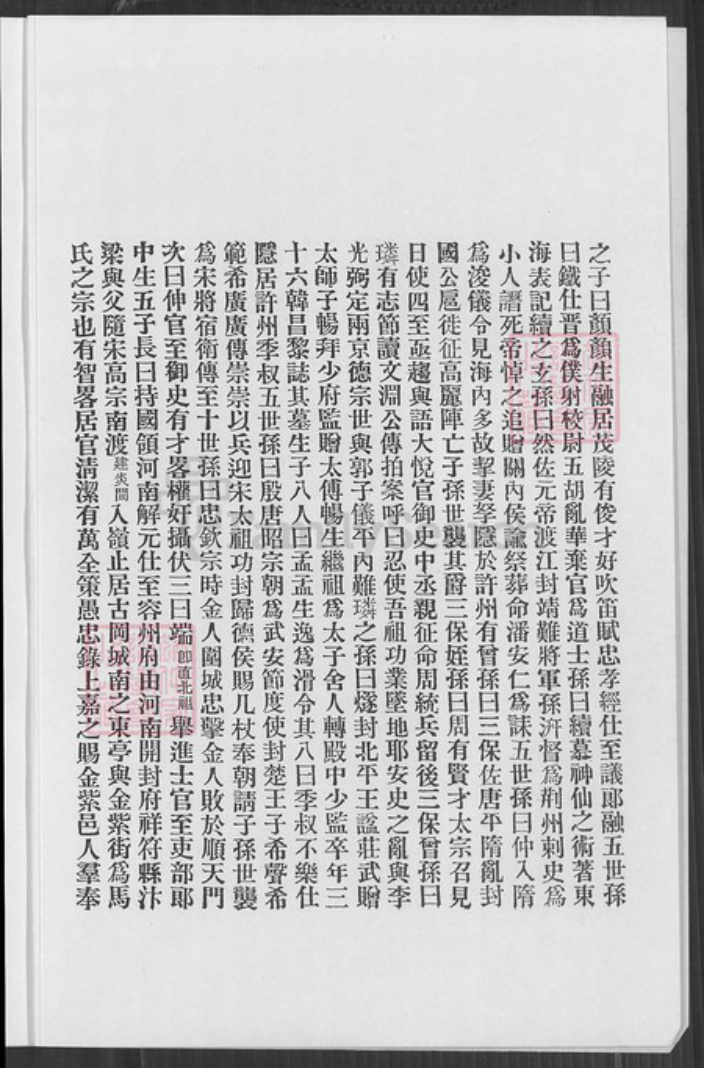 之子曰顏顏生融居茂陵有俊才好吹笛賦忠孝經仕至議郞融五世孫
曰鐵仕晋爲僕射校尉五胡亂華棄官爲道士孫曰續慕神仙之術著東
海表記續之玄孫曰然佐元帝渡江封靖難將軍孫汧督爲荆州刺史爲
小人譖死帝悼之追贈關內侯諭祭葬命潘安仁爲誄五世孫曰仲入隋
爲浚儀令見海內多故挈妻孥隱於許州有曾孫曰三保佐唐平隋亂封
國公扈從征高麗陣亡子孫世襲其爵三保姪孫曰周有賢才太宗召見
日使四至亟趨與語大悅官御史中丞親征命周統兵留後三保曾孫曰
璘有志節讀文淵公傳拍案呼曰忍使吾祖功業墜地耶安史之亂與李
光弼定兩京德宗世與郭子儀平內難璘之孫曰燧封北平王諡莊武贈
太師子暢拜少府監贈太傅暢生繼祖爲太子舍人轉殿中少監卒年三
十六韓昌黎誌其墓生子八人曰孟孟生逸爲滑令其八曰季叔不樂仕
隱居許州季叔五世孫曰殷唐昭宗朝爲武安節度使封楚王子希聲希
範希廣廣傳崇崇以兵迎宋太祖功封歸德侯賜几杖奉朝請子孫世襲
爲宋將宿衛傳至十世孫曰忠欽宗時金人圍城忠擊金人敗於順天門
次曰伸官至御史有才畧權奸攝伏三曰端卽直北祖舉進士官至吏部郞
中生五子長曰持國領河南解元仕至容州府由河南開封府祥符縣汴
梁與父隨宋高宗南渡建炎間入嶺止居古岡城南之東亭與金紫街爲馬
氏之宗也有智畧居官清潔有萬全策愚忠錄上嘉之賜金紫邑人羣奉